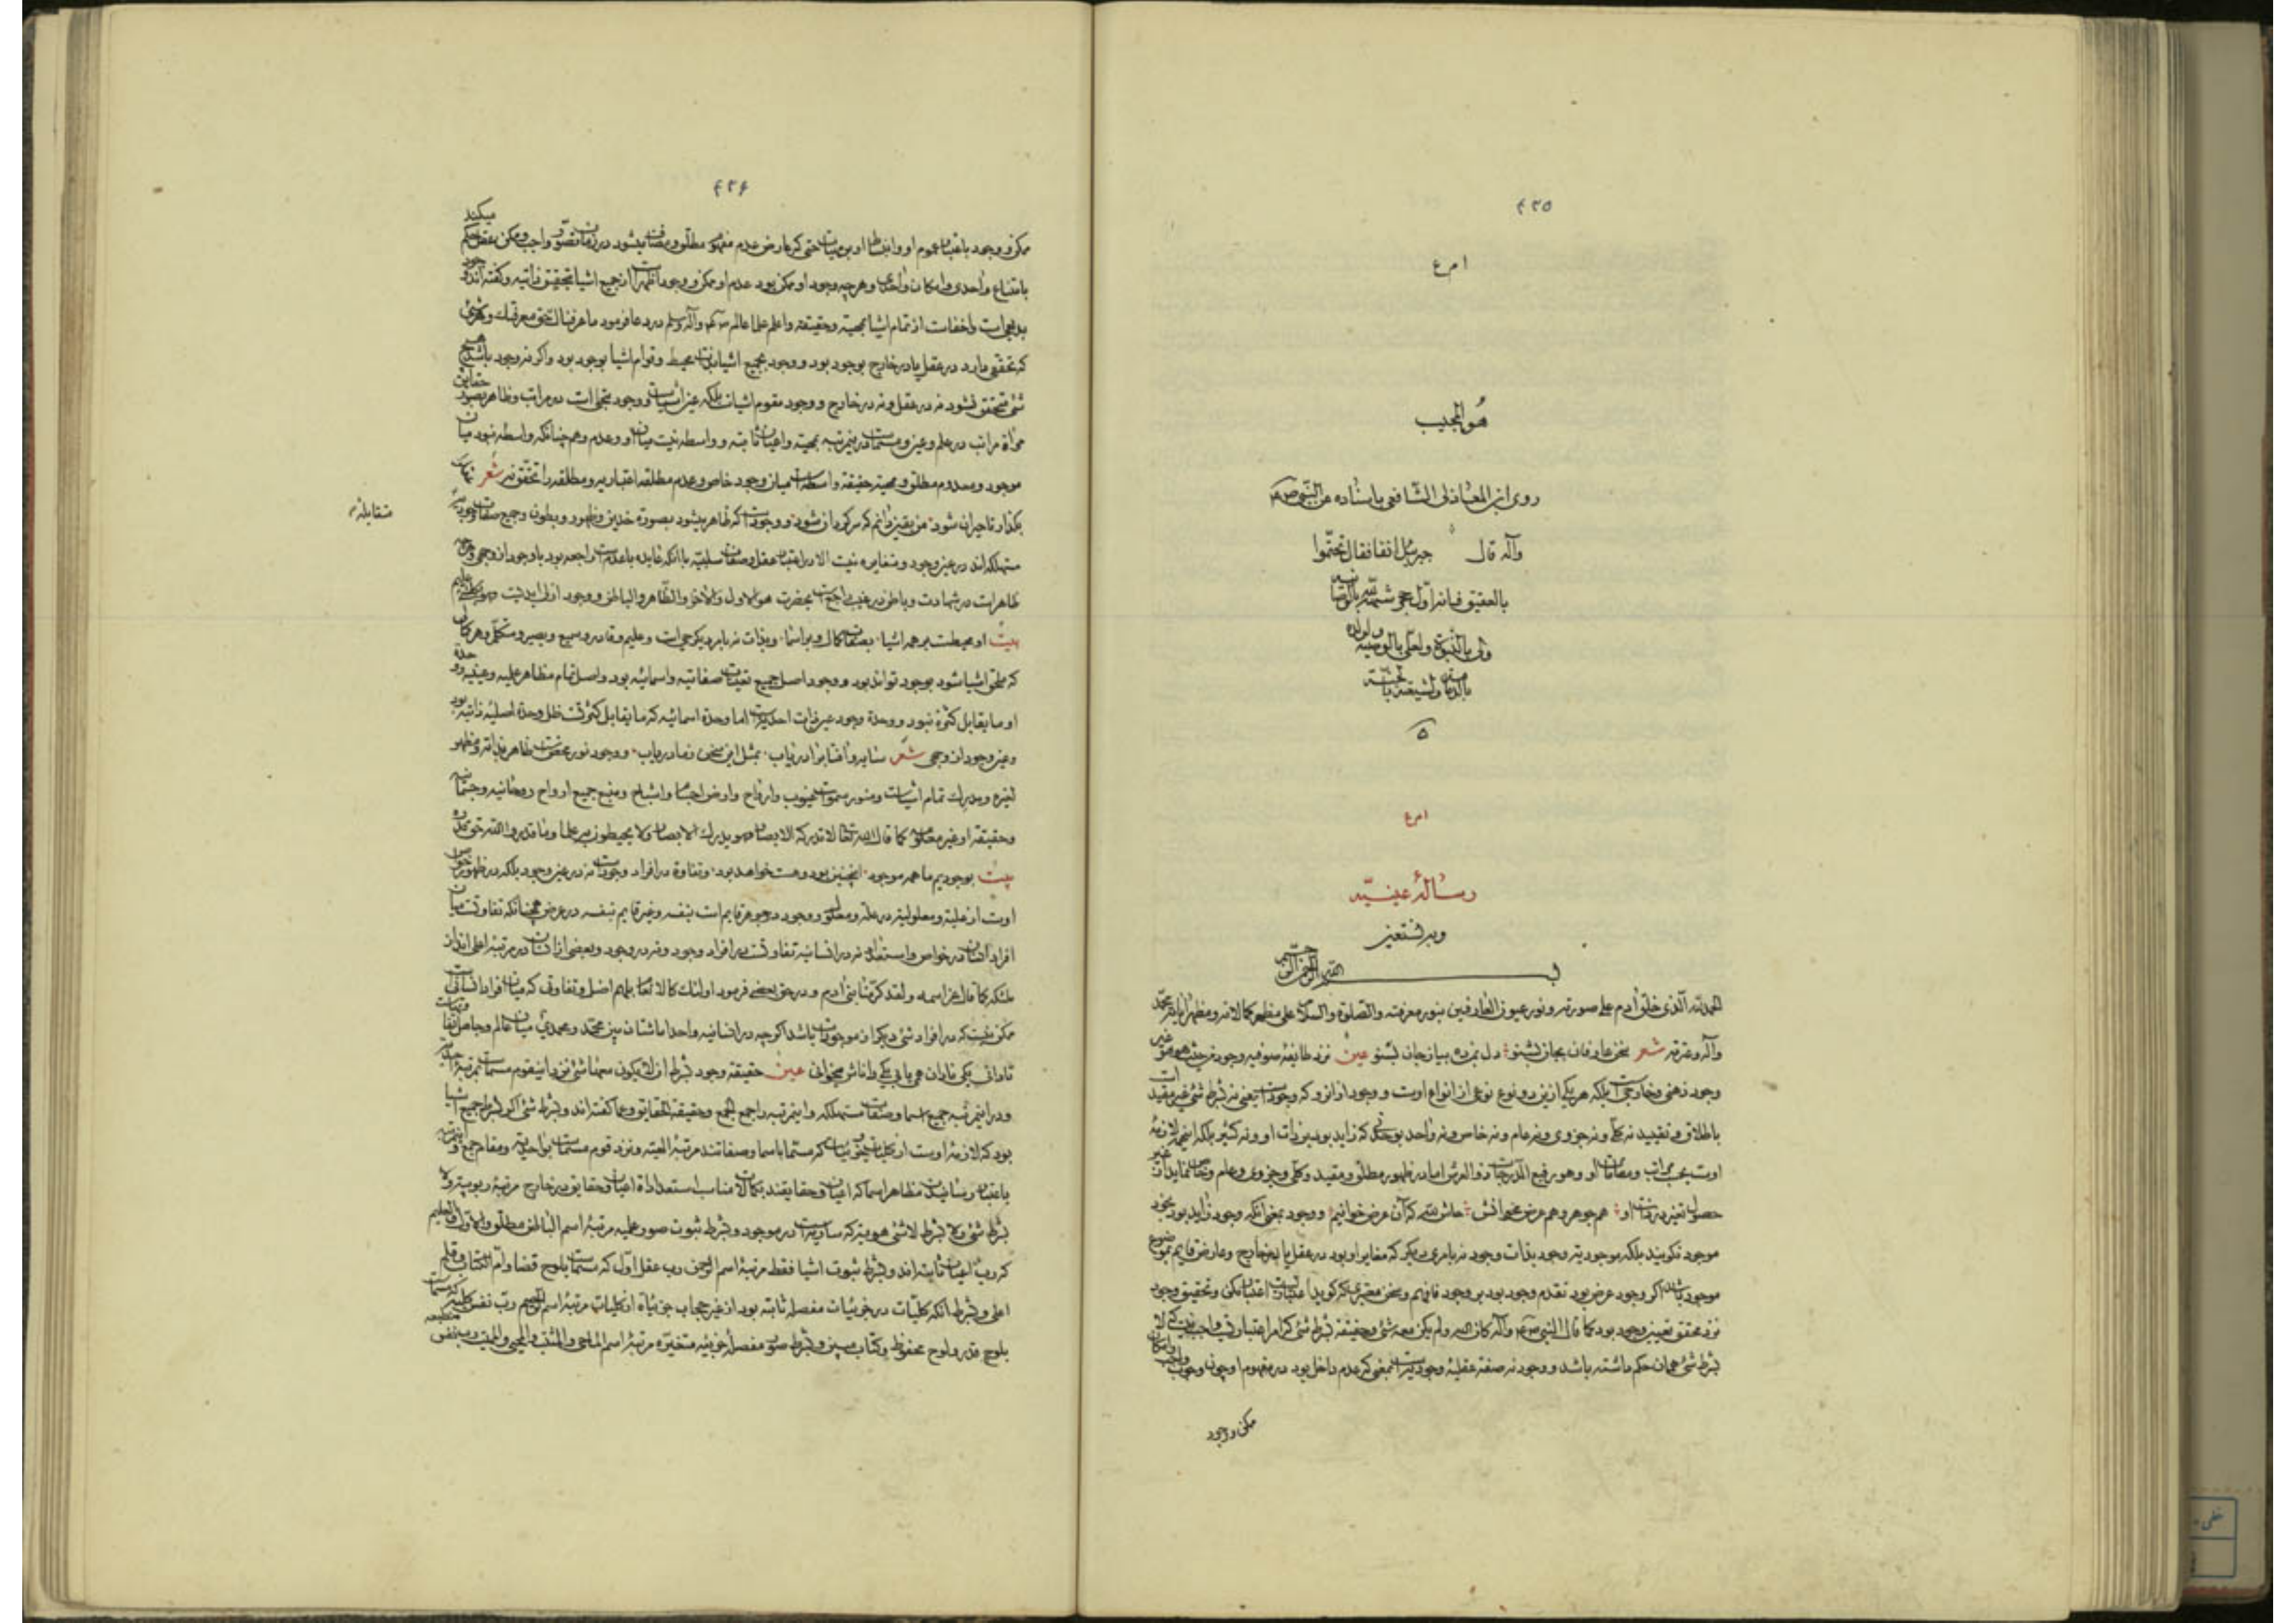 ٤٣٥
هو المجیب
روی ابن المغازلی الشافعی باسناده عن النبی
وآله قال جبرئیل انفا فقال تختموا
بالعقیق فانه اول حجر شهد لله بالوحدانیه
ولی بالنبوة ولعلی بالوصیه ولولده
بالامامة ولشیعته بالجنة
رسالهٔ عینیّه
وبه نستعین
بسم الله الرحمن الرحیم
الحمد لله الذی خلق آدم علی صورته ونور عیون العارفین بنور معرفته والصلوة والسلام علی مظهر کمالاته ومظهر آیاته محمد
وآله وعترته شعر سخن عارفان بجان بشنو دل بمن ده بیان جان بشنو عین نزد طایفهٔ صوفیه وجود من حیث هو هو غیر
وجود ذهنی وخارجی است بلکه هر یکی ازین دو نوع نوعی از انواع اوست و وجود از آنرو که وجودست یعنی نه بشرط شیء غیر مقید است
باطلاق وتقیید نه کلی ونه جزوی ونه عام ونه خاص ونه واحد بوحدتی که زاید بود بر ذات او ونه کثیر بلکه اینهمه لازمهٔ
اوست بحسب مراتب ومقامات او وهو رفیع الدرجات ذو العرش اما در ظهور مطلق ومقید وکلی وجزوی وعام وخاص نماید از غیر
حصول تغیر در ذات او هم جوهر وهم عرض میخوانش حاش لله که آن عرض خوانیم ووجود بمعنی آنکه وجود زاید بود بخود
موجود نگویند بلکه موجودیة وجود بذات وجود نه بامری دیگر که مغایر او بود در عقل یا بخارج وعارض قایم بموضوع
موجود باشد اگر وجود عرض بود تقدم وجود بود بر وجود
نزد محقق تعین وجود بود کما قال النبی وآله کان الله ولم یکن معه شیء وحقیقة بشرط شیء
بشرط شیء همان حکم داشته باشد ووجود نه صفة عقلیهٔ وجودیه است بمعنی که عدم داخل بود در مفهوم او چون وجوب واجب وامکان
ممکن ووجود
٤٣٦
ممکن ووجود باعتبار عموم او وانبساط او بر ماهیات حتی که عارض عدم مفهوم مطلق ومضاف میشود در زمان تصور واجب وممکن عقل حکم میکند
بامتناع واحدی وامکان واحدی وهرچه وجود او ممکن بود عدم او ممکن ووجود اظهرست از جمیع اشیا بتحقق وانیه وگفته اند که
بدیهی است واخفاست از تمام اشیا بمهیة وحقیقة واعلم علما عالم وآله وسلم در دعا فرمود ما عرفناک حق معرفتک وهر شیء
که تحققی دارد در عقل یا در خارج بوجود بود ووجود بجمیع اشیا بذات محیط وقوام اشیا بوجود بود واگر نه وجود باشد هیچ
شیء متحقق نشود نه در عقل ونه در خارج ووجود مقوم اشیاست بلکه عین اشیاست ووجود متجلی است در مراتب وظاهر بصور حقایق
مراة مراتب در علم وعین ومسماست درین مرتبه بمهیة واعیان ثابته وواسطه نیست میان او وعدم وهم چنانکه واسطه نبود میان
موجود ومعدوم مطلق ومهیة حقیقة واسطه است میان وجود خاص وعدم مطلقه اعتباریه ومطلقه را تحقق نه شعر
بگذار تا حیران شود من یقین دانم که سرگردان شود ووجودست که ظاهر میشود بصورة ضدین وظهور وبطون وجمیع صفات وجودیه
متقابله
مستهلکه اند در عین وجود ومغایره نیست الا در اعتبار عقل وصفات سلبیه با آنکه عایده با عدم است راجعه بود باوجود از وجهی
ظاهرست در شهادت وباطن در غیب راجع است بحضرت هو الاول والآخر والظاهر والباطن ووجود ازلی ابدیست وهو بکل شیء علیم
بیت او محیطست بر همه اشیا بصفات کمال وبر اسما وبذات نه بامر دیگر حی است وعلیم وقادر وسمیع وبصیر ومتکلم وهر کمالی
که ملحق اشیا شود بوجود تواند بود ووجود اصل جمیع تعینات صفاتیه واسمائیه بود واصل تمام مظاهر علمیه وعینیه ووحدة
او مایقابل کثرة نبود ووحدة وجود عین ذات احدیه است اما وحدة اسمائیه که مایقابل کثرتست ظل وحدة اصلیهٔ ذاتیه بود
وعین وجود از وجهی شعر سایه وآفتاب را دریاب بمثل این سخن زما دریاب ووجود نور محض است ظاهر بذاته ومظهر
لغیره ومدرک تمام اشیاست ومنور سموات غیوب وارواح وارض اجسام واشباح ومنبع جمیع ارواح روحانیه وجسمانیه
وحقیقة او غیر معلوم کما قال الله تعالی لا تدرکه الابصار وهو یدرک الابصار ولا یحیطون به علما وما قدروا الله حق قدره
بیت بوجودیم ما همه موجود اینچنین بود وهست خواهد بود وتفاوة در افراد وجودست نه در عین وجود بلکه در ظهور خواص
اوست از علیة ومعلولیة در علة ومعلول ووجود در جوهر قایم است بنفسه وغیر قایم بنفسه در عرض همچنانکه تفاوتست میان
افراد انسان در خواص واستعداد نه در انسانیة تفاوتست در افراد وجود ونه در وجود وبعضی از انسان در مرتبه اعلی اند از
ملئکه کما قال عز اسمه ولقد کرمنا بنی آدم ودر حق بعضی فرمود اولئک کالانعام بل هم اضل وتفاوتی که میان افراد انسانی است
ممکن نیست که در افراد شیء دیگر از موجودات باشد اگرچه در انسانیه واحد اما شتان بین محمد ومحمدی میان عالم وجاهل
نادانی یکی نادان همی یابی یکی دانایش میخوانی عین حقیقة وجود بشرط ان لا یکون معها شیء نزد این قوم مسماست بمرتبهٔ احدیه
ودر این مرتبه جمیع اسما وصفات مستهلکه واین مرتبه را جمع الجمع وحقیقة الحقایق وعما گفته اند وبشرط شیء اگر بشرط جمیع اشیا
بود که لازمهٔ اوست از کلیات وجزویات که مسما باسما وصفاتند مرتبهٔ الهیه ونزد قوم مسماست بواحدیة ومقام جمع واین مرتبه
باعتبار رسانیدن مظاهر اسما که اعیان وحقایقند بکمالات مناسب استعدادات اعیان وحقایق در خارج مرتبهٔ ربوبیة ولا
بشرط شیء ولا بشرط لا شیء هویة که ساریست در موجود وبشرط ثبوت صور علمیه مرتبهٔ اسم الباطن مطلق والاول والعلیم
که رب اعیان ثابته اند وبشرط ثبوت اشیا فقط مرتبهٔ اسم الرحمن رب عقل اول که مسماست بلوح قضا وام الکتاب وقلم
اعلی وبشرط آنکه کلیات در جزئیات مفصله ثابته بود از غیر حجاب جزئیات از کلیات مرتبهٔ اسم الرحیم رب نفس کلیه که مسماست
بلوح قدر ولوح محفوظ وکتاب مبین وبشرط صور مفصله جزئیه متغیره مرتبهٔ اسم الماحی والمثبت والمحیی والممیت رب نفس منطبعه